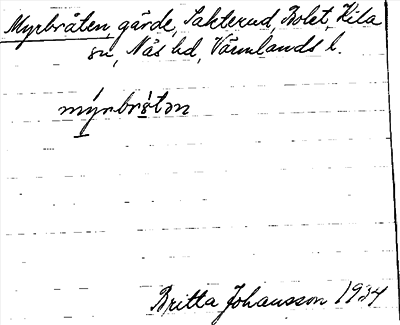 Myrbråten, gärde, Sakterud, Bolet, Kila
sn, Näs hd, Värmlands l.
mýrbrå̀tən
Britta Johansson 1934